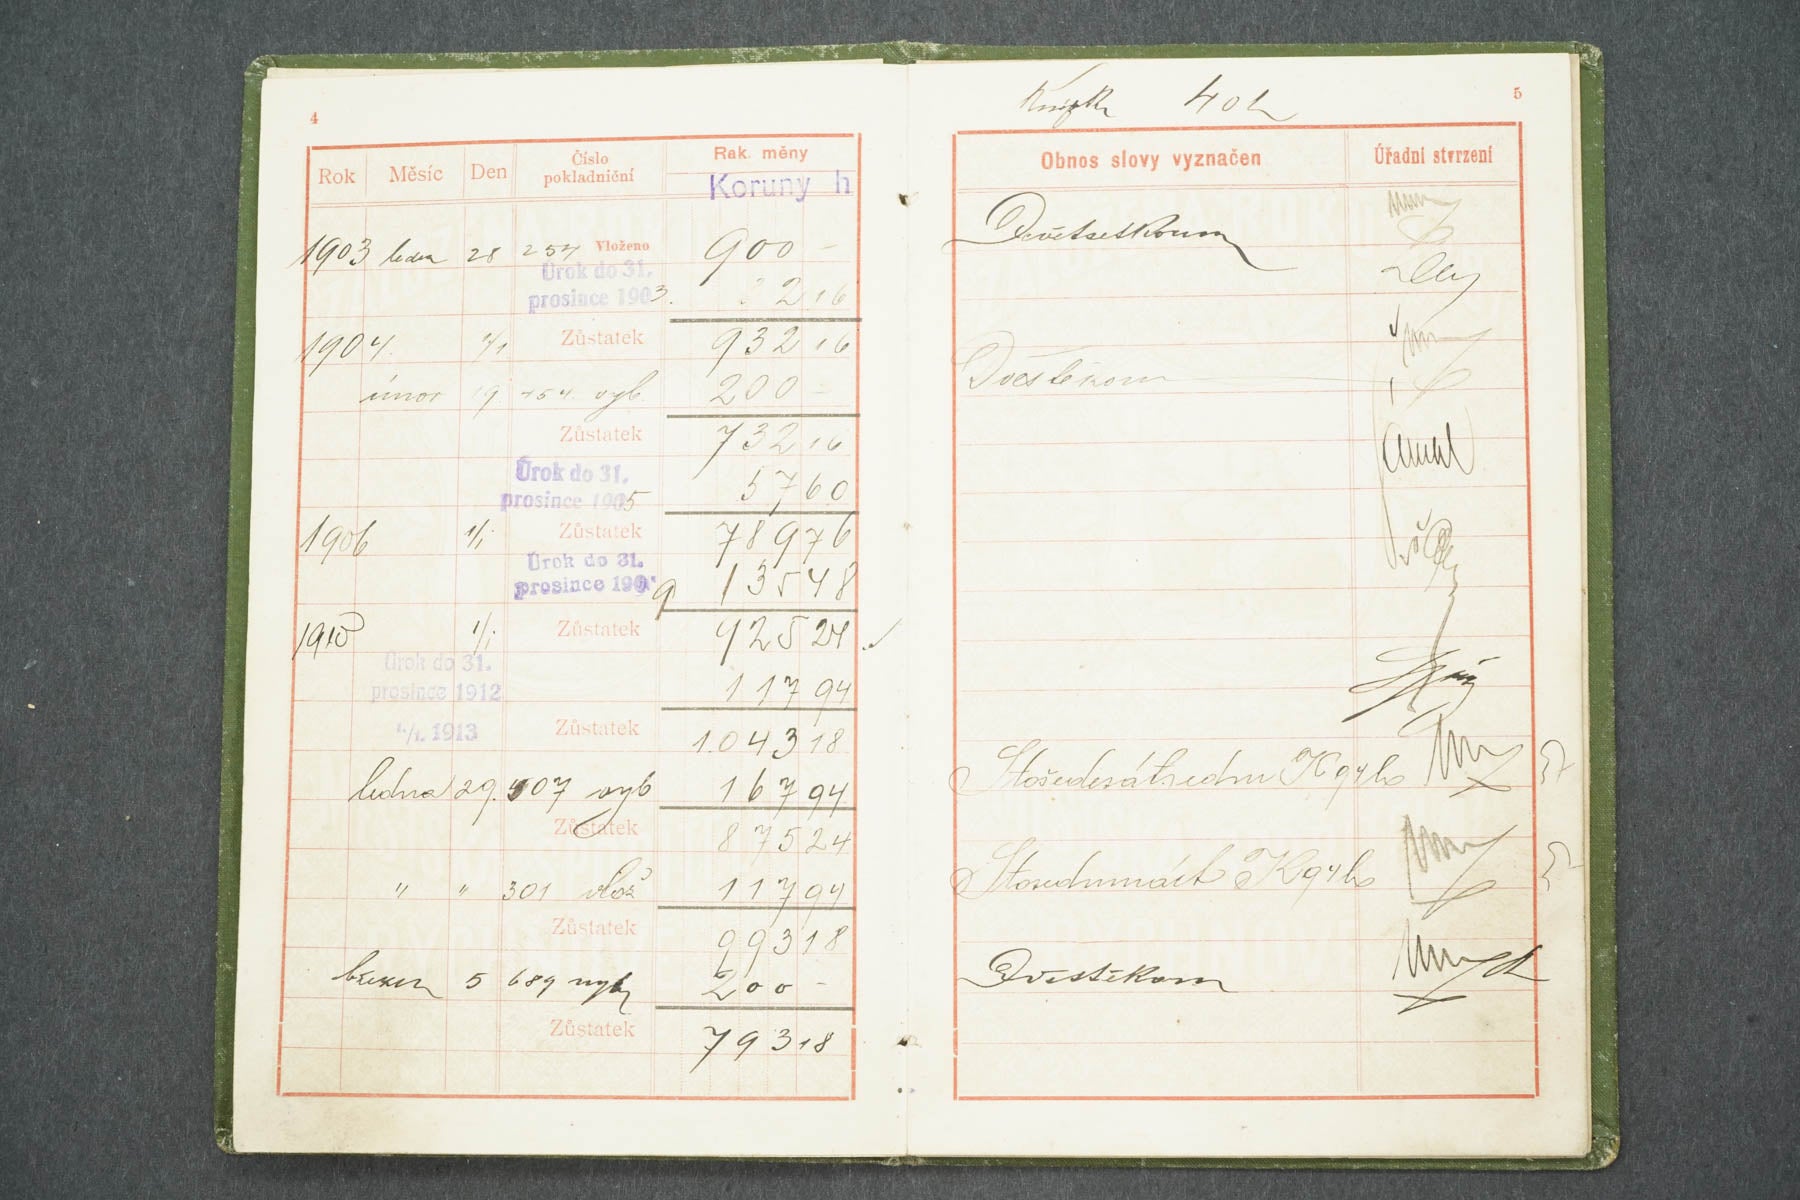 4
Rok Měsíc Den Číslo pokladniční Rak. měny
Koruny h
1903 leden 28 257 Vloženo 900 –
Úrok do 31.
prosince 1903. 32 16
1904. 1/1 Zůstatek 932 16
únor 19 754. vyb. 200 –
Zůstatek 732 16
Úrok do 31.
prosince 1905 57 60
1906 1/1 Zůstatek 789 76
Úrok do 31.
prosince 1909 135 48
1910 1/1 Zůstatek 925 24
Úrok do 31.
prosince 1912 117 94
1./1. 1913 Zůstatek 1043 18
ledna 29. 507 vyb 167 94
Zůstatek 875 24
" " 301 vlož 117 94
Zůstatek 993 18
březen 5 689 vyb 200 –
Zůstatek 793 18
40 h
5
Obnos slovy vyznačen Úřadní stvrzení
Devětsetkorun
Dvěstěkorun
Stošedesátsedm K 94 h
Stosedmnáct K 94 h
Dvěstěkorun